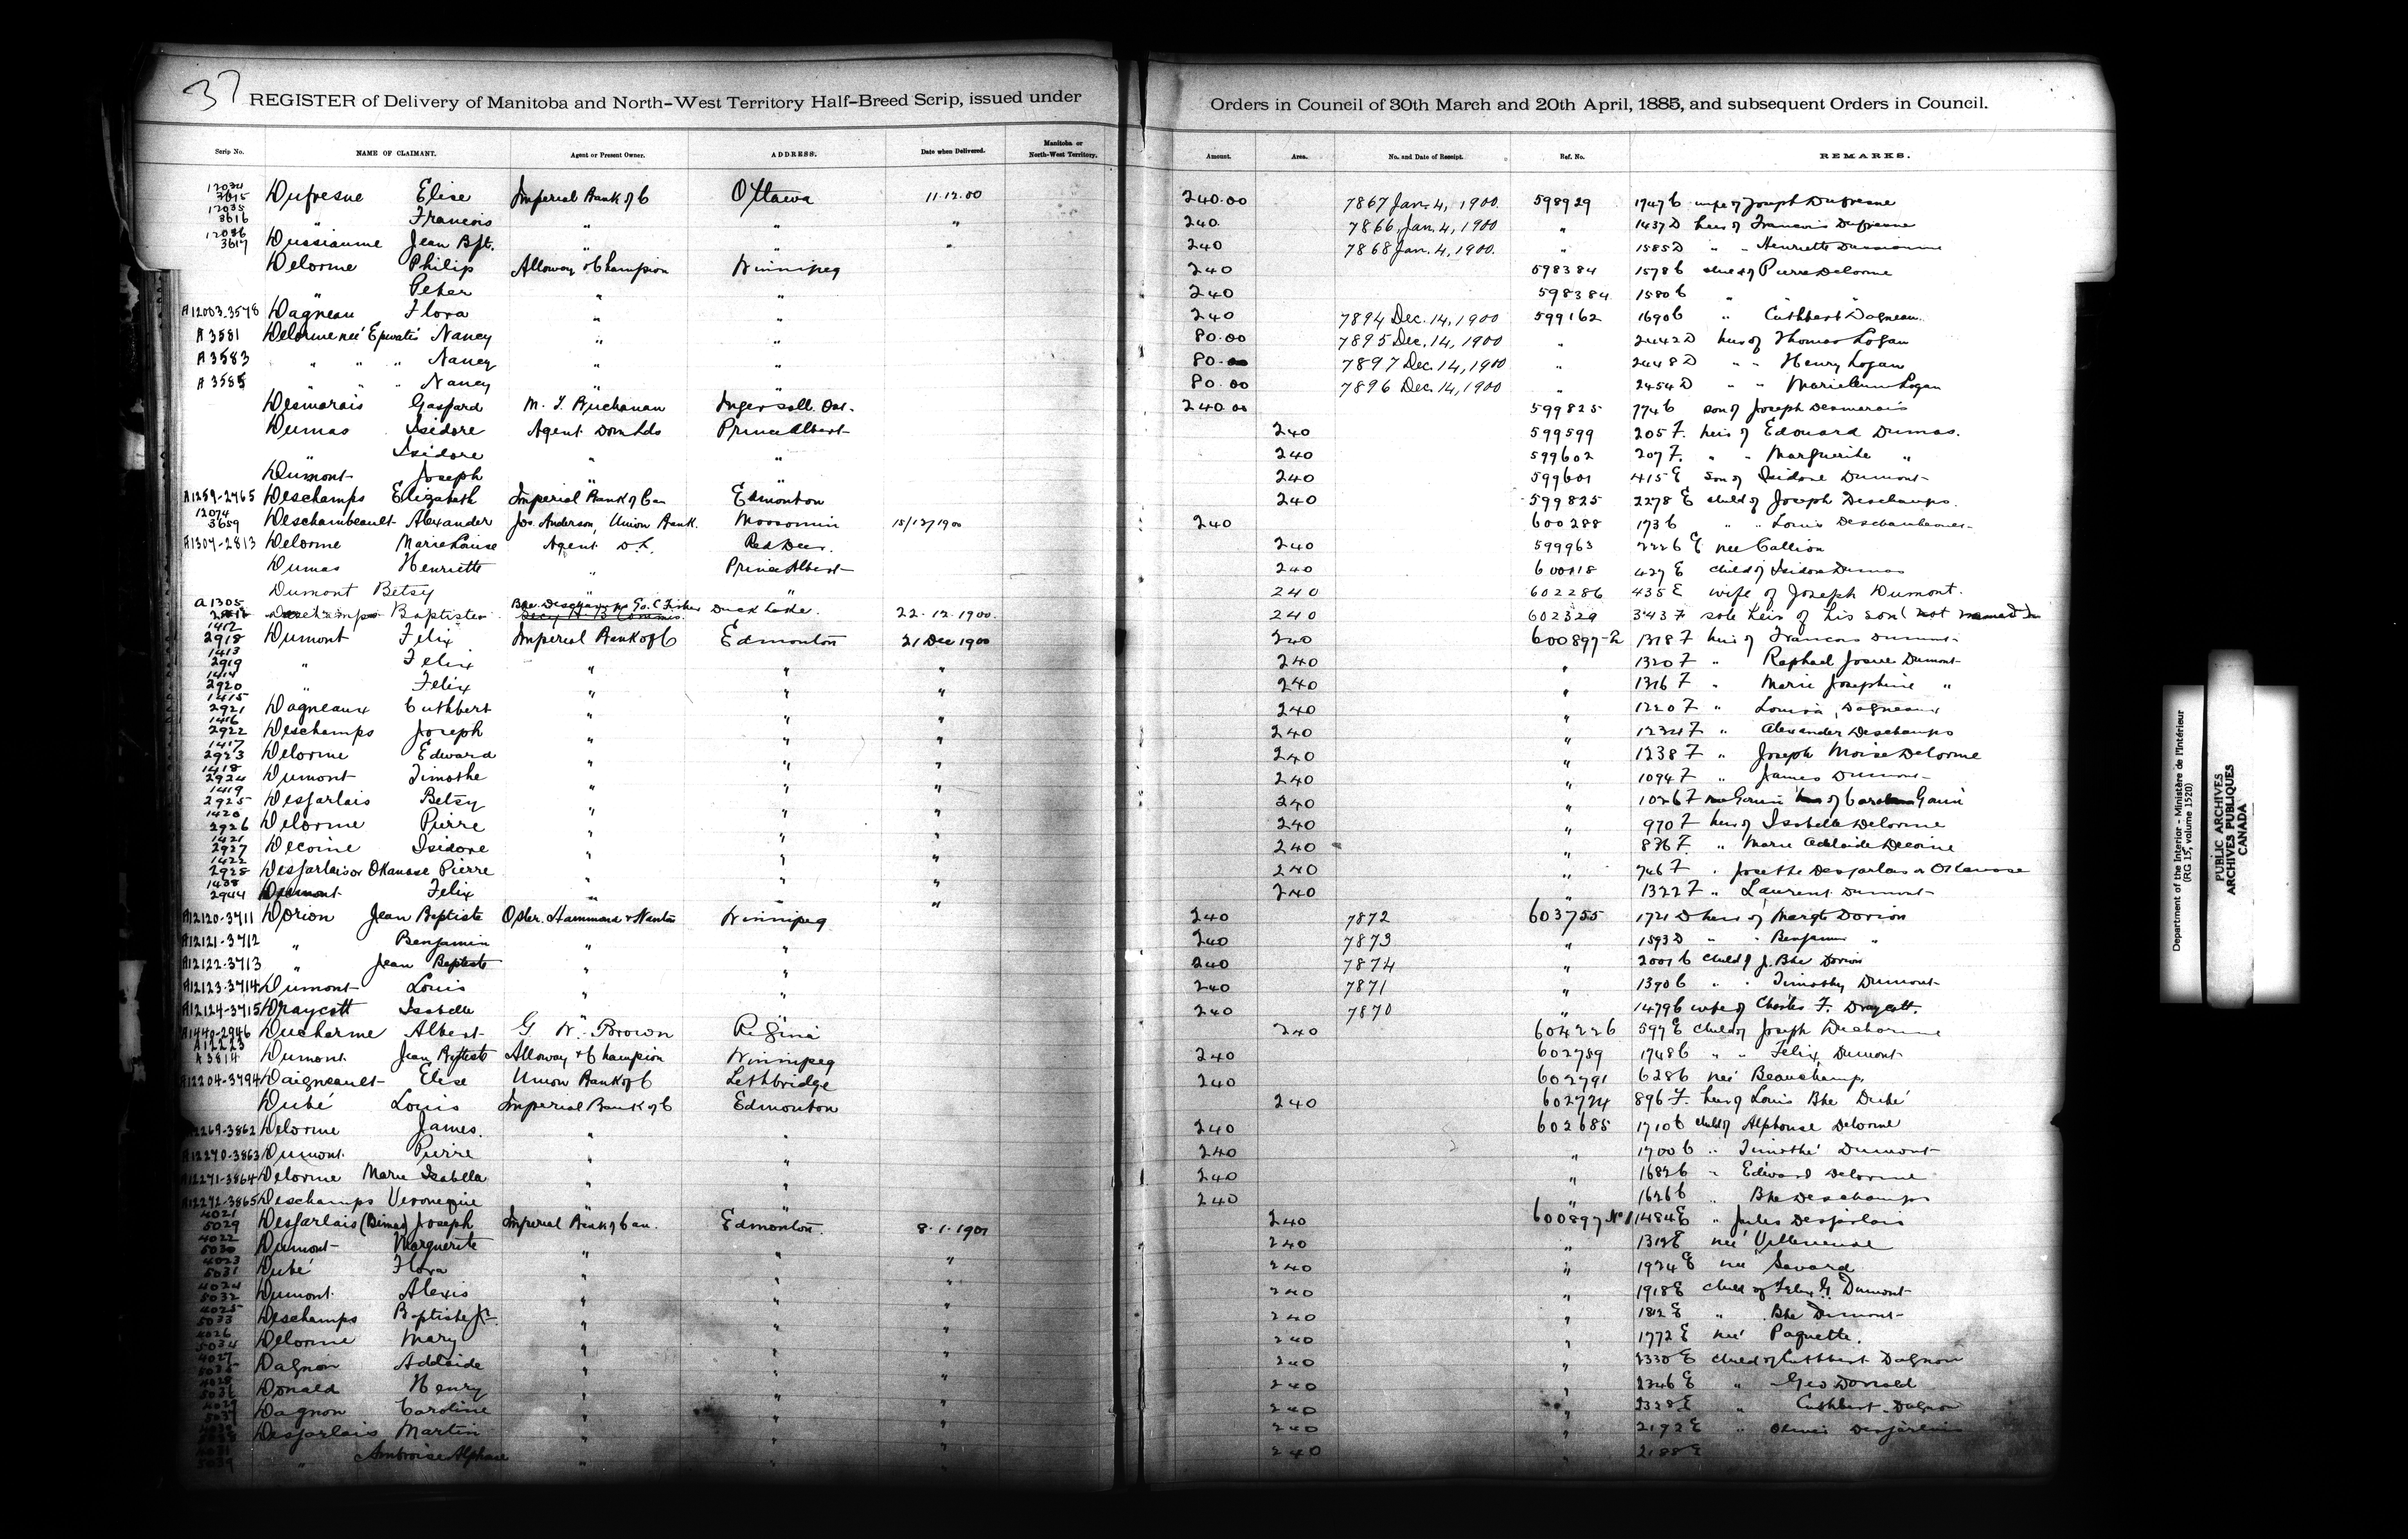 37
REGISTER of Delivery of Manitoba and North-West Territory Half-Breed Scrip, issued under Orders in Council of 30th March and 20th April, 1885, and subsequent Orders in Council.
Scrip No. NAME OF CLAIMANT. Agent or Present Owner. ADDRESS. Date when Delivered. Manitoba or North-West Territory. Amount. Area. No. and Date of Receipt. Ref. No. REMARKS.
12034 3615 Dufresne Elise Imperial Bank of C Ottawa 11.12.00 240.00 7867 Jan. 4, 1900. 598929 1747 C wife of Joseph Dufresne
12035 3616 " Francois " " " 240. 7866, Jan. 4, 1900 " 1437 D heir of Francois Dufresne
12036 3617 Dussiaume Jean Bpt. " " " 240 7868 Jan. 4, 1900. " 1585 D " " Henriette Dussiaume
Delorme Philip Alloway & Champion Winnipeg 240 598384 1578 C child of Pierre Delorme
" Peter " " 240 598384 1580 C " "
A12003-3578 Dagneau Flora " " 240 7894 Dec. 14, 1900 599162 1690 C " Cuthbert Dagneau
A3581 Delorme neé Nancy " " 80.00 7895 Dec. 14, 1900 " 2442 D heir of Thomas Logan
A3583 " " " Nancy " " 80.00 7897 Dec. 14, 1900 " 2448 D " " Henry Logan
A3585 " " " Nancy " " 80.00 7896 Dec. 14, 1900 " 2454 D " " Logan
Desmarais Gaspard M. T. Buchanan Ingersoll. Ont. 240.00 599825 774 C son of Joseph Desmarais
Dumas Isidore Agent Dom Lds Prince Albert 240 599599 205 F. heir of Edouard Dumas.
" Isidore " " 240 599602 207 F. " " Marguerite "
Dumont Joseph " " 240 599601 415 E son of Isidore Dumont
A1259-2765 Deschamps Elizabeth Imperial Bank of Can Edmonton 240 599825 2278 E child of Joseph Deschamps.
12074 3659 Deschambeault Alexander Jos. Anderson, Union Bank. Moosomin 15/12/1900 240 600288 173 C " " Louis Deschambeault
A1307-2813 Delorme Marie Louise Agent D.L. Red Deer. 240 599963 2226 E neé Callion
Dumas Henriette " Prince Albert 240 600118 427 E child of Isidore Dumas
Dumont Betsy " " 240 602286 435 E wife of Joseph Dumont.
A1305 Deschamps Baptiste Duck Lake. 22.12.1900. 240 602329 343 F sole heir of his son (not named)
1412 2918 Dumont Felix Imperial Bank of C Edmonton 21 Dec 1900 240 600897-2 1318 F heir of Francois Dumont
1413 2919 " Felix " " " 240 " 1320 F " Raphael Josue Dumont
1414 2920 " Felix " " " 240 " 1316 F " Marie Josephine "
1415 2921 Dagneaux Cuthbert " " " 240 " 1220 F " Louisa Dagneaux
1416 2922 Deschamps Joseph " " " 240 " 1234 F " Alexander Deschamps
1417 2923 Delorme Edward " " " 240 " 1238 F " Joseph Moise Delorme
1418 2924 Dumont Timothe " " " 240 " 1094 F " James Dumont
1419 2925 Desjarlais Betsy " " " 240 " 1026 F
1420 2926 Delorme Pierre " " " 240 " 970 F heir of Isabelle Delorme
1421 2927 Decoine Isidore " " " 240 " 836 F. " Marie Adelaide Decoine
1422 2928 Desjarlais or Okanase Pierre " " " 240 " 746 F " Josette Desjarlais or Okanase
1438 2944 Dumont Felix " " " 240 1322 F " Laurent Dumont
A12120-3711 Dorion Jean Baptiste Osler. Hammond & Nanton Winnipeg 240 7872 603755 1721 D heir of Margt Dorion
A12121-3712 " Benjamin " " 240 7873 " 1593 D " " Benjamin "
A12122-3713 " Jean Baptiste " " 240 7874 " 2001 C child of J. Bte Dorion
A12123-3714 Dumont Louis " " 240 7871 " 1390 C " " Timothy Dumont
A12124-3715 Draycott Isabelle " " 240 7870 " 1479 C wife of Charles F. Draycott.
A1440-2946 Ducharme Albert G W. Brown Regina 240 604226 597 E child of Joseph Ducharme
A12223 A3814 Dumont. Jean Baptiste Alloway & Champion Winnipeg 240 602789 1748 C " " Felix Dumont
A12204-3794 Daigneault Elise Union Bank of C Lethbridge 240 602791 628 C neé Beauchamp
Dubé Louis Imperial Bank of C Edmonton 240 602724 896 F. heir of Louis Bte Dubé
A12269-3862 Delorme James. " " 240 602685 1710 C child of Alphonse Delorme
A12270-3863 Dumont. Pierre " " 240 " 1700 C " Timothé Dumont
A12271-3864 Delorme Marie Isabella " " 240 " 1682 C " Edward Delorme
A12272-3865 Deschamps Veronique " " 240 " 1626 C " Bte Deschamps
4021 5029 Desjarlais Joseph Imperial Bank of Can. Edmonton. 8.1.1901 240 600897 No 1 1484 E " Jules Desjarlais
4022 5030 Dumont Marguerite " " 240 " 1312 E neé Villeneuve
4023 5031 Dubé Flora " " " 240 " 1924 E neé Savard
4024 5032 Dumont. Alexis " " " 240 " 1918 E child of Felix Dumont
4025 5033 Deschamps Baptiste Jr. " " " 240 " 1812 E " Bte Dumont
4026 5034 Delorme Mary " " " 240 " 1772 E neé Paquette.
4027 5035 Dagnon Adelaide " " " 240 " 2330 E child of Cuthbert Dagnon
4028 5036 Donald Henry " " " 240 " 2346 E " Geo Donald
4029 5037 Dagnon Caroline " " " 240 " 2328 E " Cuthbert Dagnon
Desjarlais Martin " " " 240 " 2192 E " Desjarlais
4031 5039 " Ambroise Alphonse " " " 240 " 2188 E
Department of the Interior - Ministère de l'Intérieur
(RG 15, volume 1520)
PUBLIC ARCHIVES
ARCHIVES PUBLIQUES
CANADA